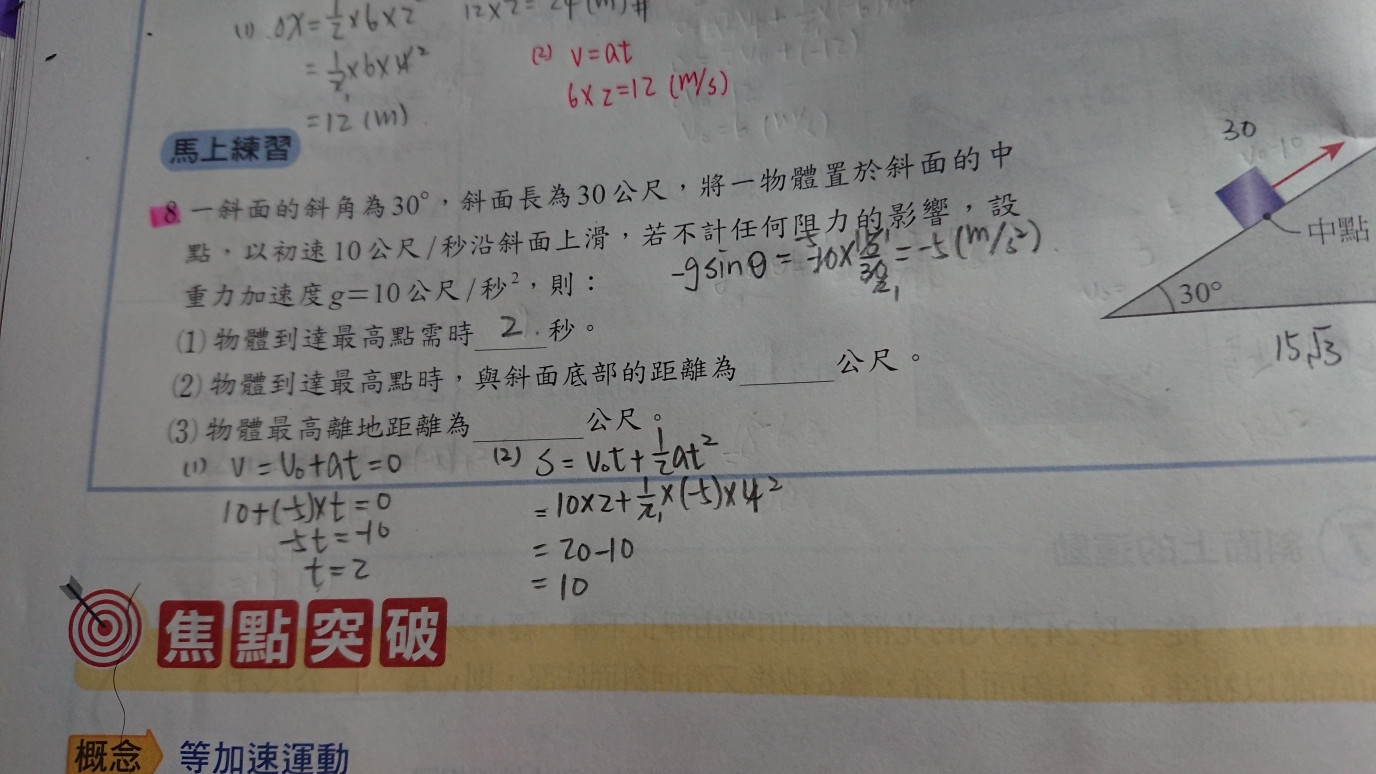 (1) ΔX = 1/2 × 6 × 2²
= 1/2 × 6 × 4 2
= 12 (m)
12 × 2 = 24 (m) #
(2) v = at
6 × 2 = 12 (m/s)
馬上練習
8 一斜面的斜角為30°，斜面長為30公尺，將一物體置於斜面的中
點，以初速10公尺/秒沿斜面上滑，若不計任何阻力的影響，設
重力加速度g＝10公尺/秒²，則：
-g sinθ = -10 × 15/30 = -5 (m/s²)
(1)物體到達最高點需時 2 秒。
(2)物體到達最高點時，與斜面底部的距離為______公尺。
(3)物體最高離地距離為______公尺。
30
中點
30°
15√3
(1) v = v₀ + at = 0
10 + (-5) × t = 0
-5t = -10
t = 2
(2) S = v₀t + 1/2 at²
= 10 × 2 + 1/2 × (-5) × 4 2
= 20 - 10
= 10
焦點突破
概念 等加速運動